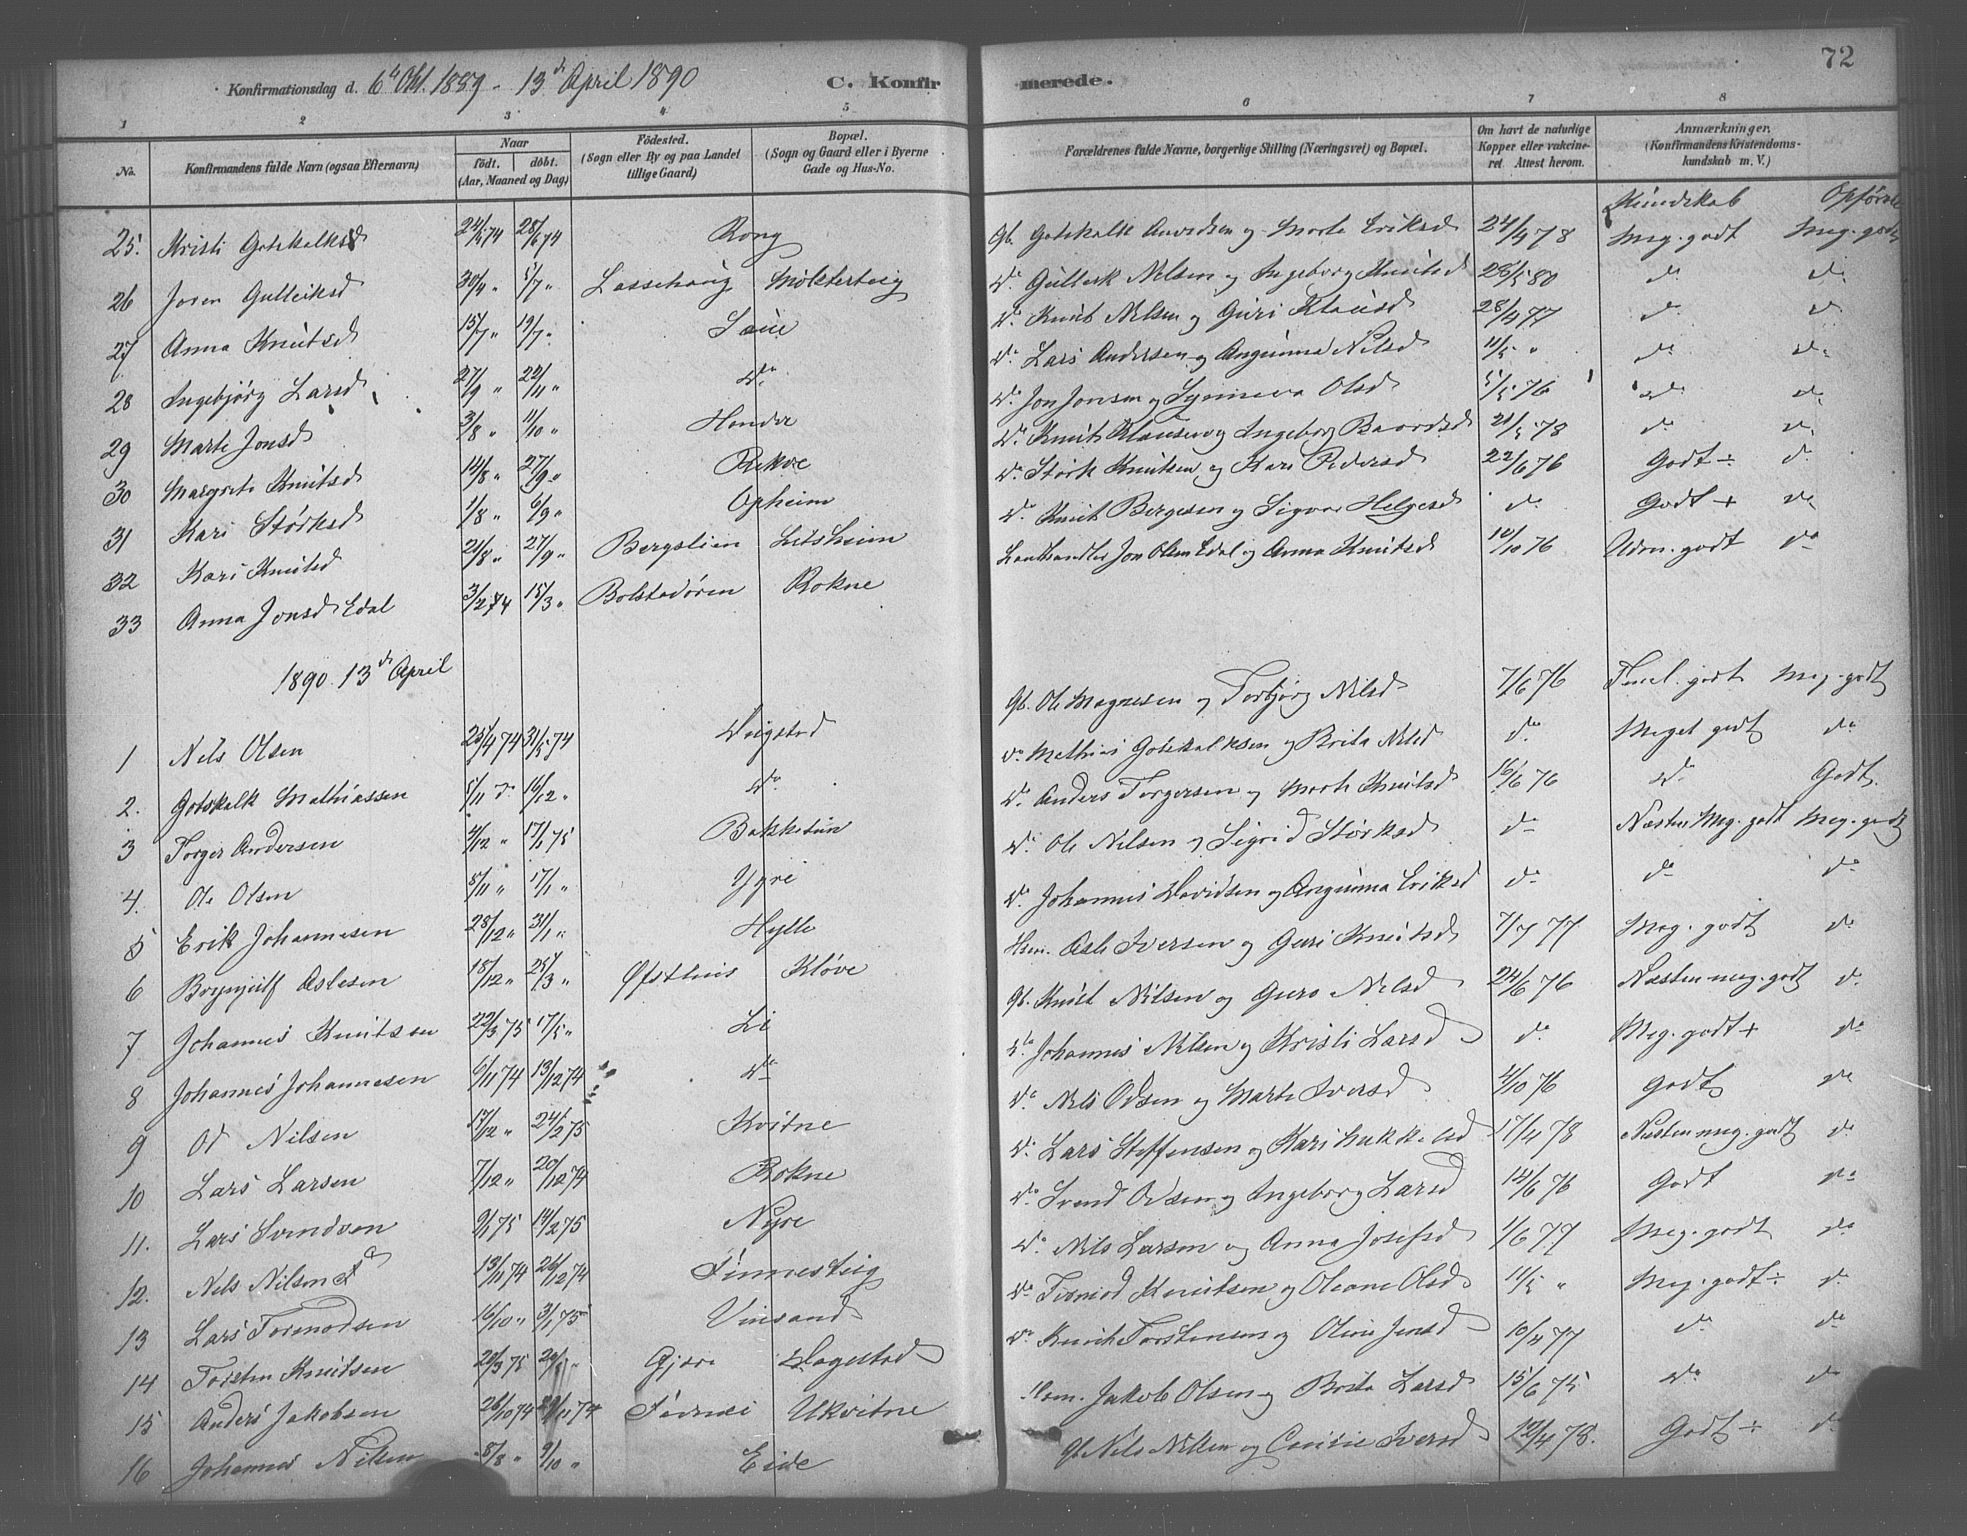 72
Konfirmationsdag d. 6te Okt. 1889 - 13de April 1890 C. Konfirmerede.
1 2 3 4 5 6 7 8
No. Konfirmandens fulde Navn (ogsaa Efternavn) Naar født. døbt. (Aar, Maaned og Dag) Fødested. (Sogn eller By og paa Landet tillige Gaard) Bopæl. (Sogn og Gaard eller i Byerne Gade og Hus-No. Forældrenes fulde Navne, borgerlige Stilling (Næringsvei) og Bopæl. Om havt de naturlige Kopper eller vakcineret. Attest herom. Anmærkninger. (Konfirmandens Kristendomskundskab m. V.)
Kundskab
25. Kristi Gotskalksd 28/6 74 Rong Gb. Gotskalk og Marta Eriksd 24/4 78 Meg. godt Meg. godt
26 Joren Gulleiksd 30/4 " 5/7 " Lassehaug Mølsterteig do Gulleik Nilsen og Ingeborg Knutsd 26/5 80 do do
27 Anna Knutsd 15/7 " 19/7 " do Knut Nilsen og Guri Klausd 28/4 77 do d
28 Ingebjørg Larsd 27/9 " 22/11 " do do Lars Andersen og Angunna Nilsd 11/5 " do do
29 Marte Jonsd 3/8 " 11/10 " do Jon Jonsen og Synneva Olsd 5/5 76 do do
30 Margreta Knutsd 14/8 " 27/9 " Rekve do Knut Klausen og Ingeborg Baardsd 21/5 78 do do
31 Kari Størksd 1/8 " 6/9 " Opheim do Størk Knutsen og Kari Pedersd 22/6 76 Godt ÷ do
32 Kari Knutsd 21/8 " 27/9 " Bergslien do Knut Bergesen og Helgesd do Godt + do
33 Anna Jonsd Edal 3/2 74 15/3 " Bolstadøren Rokne Landhandler Jon Olsen Edal og Anna Knutsd 10/10 76 Udm. godt do
1890 13de April
1 Nils Olsen 25/4 74 31/5 74 Dugstad Gb. Ole Magnesen og Torbjørg Nilsd 7/6 76 godt Meg. godt
2. Gotskalk Mathiassen 16/12 " do do Mathias Gotskalksen og Brita Nilsd do Meget godt do
3 Torger Andersen 4/12 " 17/1 75 Bakketun do Anders Torgersen og Marta Knutsd 16/6 76 do Godt.
4. Ole Olsen 8/11 " 17/1 " Ygre do Ole Nilsen og Sigrid Størksd do Næsten Meg. godt Meg. godt
5 Erik Johannesen 28/12 " 31/1 " Hylle do Johannes Davidsen og Angunna Eriksd do do do
6 Brynjulf Aslesen 18/12 " 25/3 " Østhus Kløve Hsm. Asle Iversen og Guri Knutsd 7/7 77 Meg. godt do
7 Johannes Knutsen 22/3 75 17/5 " Li Gb. Knut Nilsen og Guro Nilsd 24/6 76 Næsten meg. godt do
8 Johannes Johannesen 6/11 74 13/12 74 do do Johannes Nilsen og Kristi Larsd do Meg. godt + do
9 Od Nilsen 17/12 " 24/2 75 Kvitne do Nils Odsen og Marta Iversd 4/10 76 Godt do
10 Lars Larsen 7/12 " 20/12 74 Rokne do Lars Steffensen og Kari 17/4 78 Næsten meg. godt do
11. Lars Svendsen 9/1 75 14/2 75 Nyre do Svend Odsen og Ingeborg Larsd 14/6 76 Godt do
12. Nils Nilsen 13/11 74 26/12 74 Finnesteig do Nils Larsen og Anna Josefsd 1/6 77 Meg. godt do
13 Lars Tormodsen 16/10 " 3/1 75 Vinsand do Tormod Knutsen og Oleane Olsd 11/5 " Meg. godt ÷ do
14 Torsten Knutsen 20/3 75 Gjære Dagestad do Knut Torstensen og Olina Jonsd 10/4 77 do do
15 Anders Jakobsen 26/10 74 Ukvitne Hsm. Jakob Olsen og Brita Larsd 15/6 75 do do
16 Johannes Nilsen 8/8 " 9/10 " Eide Gb Nils Nilsen og Iversd 12/4 78. Godt ÷ do